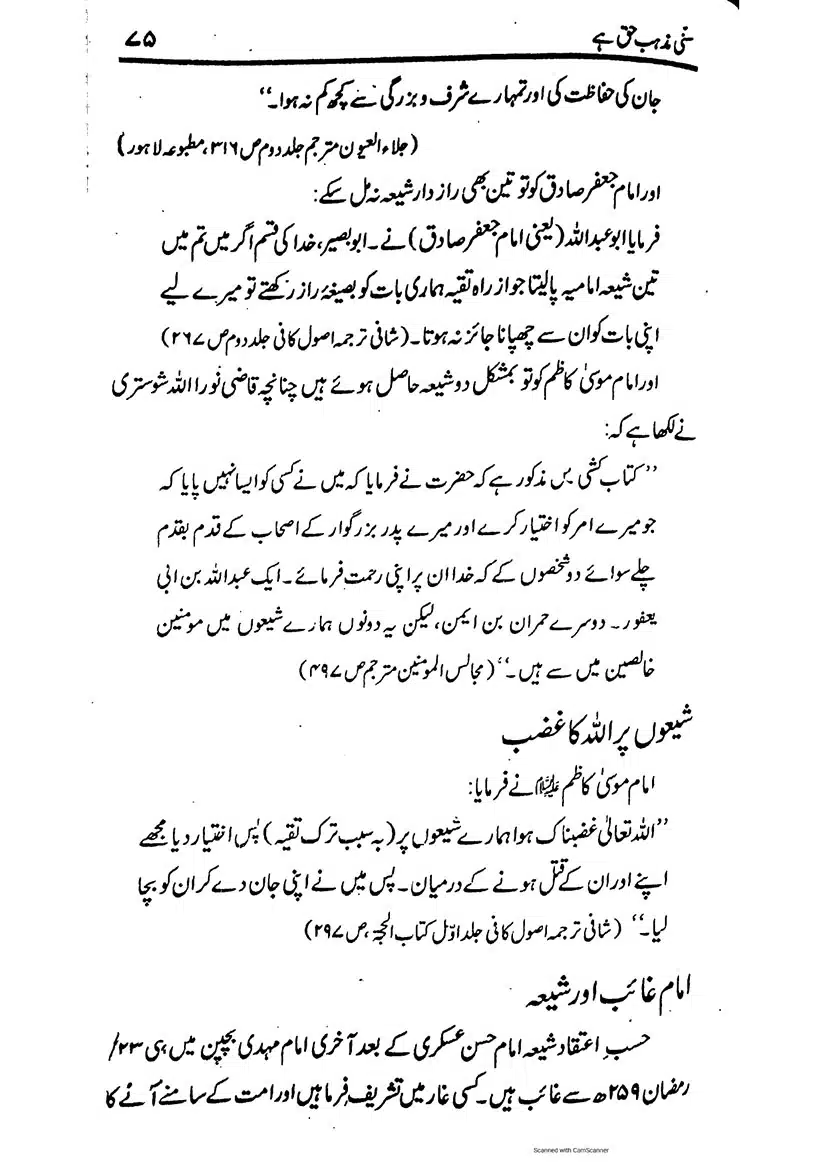 سُنّی مذہب حق ہے ۷۵
جان کی حفاظت کی اور تمہارے شرف و بزرگی سے کچھ کم نہ ہوا۔‘‘
(جلاء العیون مترجم جلد دوم ص ۳۱۶، مطبوعہ لاہور)
اور امام جعفر صادق کو تو تین بھی رازدار شیعہ نہ مل سکے:
فرمایا ابو عبداللہ (یعنی امام جعفر صادق) نے۔ ابوبصیر، خدا کی قسم اگر میں تم میں
تین شیعہ امامیہ پا لیتا جو از راہ تقیہ ہماری بات کو بصیغۂ راز رکھتے تو میرے لیے
اپنی بات کو ان سے چھپانا جائز نہ ہوتا۔ (شافی ترجمہ اصول کافی جلد دوم ص ۲۶۷)
اور امام موسیٰ کاظم کو تو بمشکل دو شیعہ حاصل ہوئے ہیں چنانچہ قاضی نورا اللہ شوستری
نے لکھا ہے کہ:
’’کتاب کشی میں مذکور ہے کہ حضرت نے فرمایا کہ میں نے کسی کو ایسا نہیں پایا کہ
جو میرے امر کو اختیار کرے اور میرے پدر بزرگوار کے اصحاب کے قدم بقدم
چلے سوائے دو شخصوں کے کہ خدا ان پر اپنی رحمت فرمائے۔ ایک عبداللہ بن ابی
یعفور۔ دوسرے حمران بن ایمن، لیکن یہ دونوں ہمارے شیعوں میں مومنین
خالصین میں سے ہیں۔‘‘ (مجالس المومنین مترجم ص ۴۹۷)
شیعوں پر اللہ کا غضب
امام موسیٰ کاظم علیہ السلام نے فرمایا:
’’اللہ تعالیٰ غضبناک ہوا ہمارے شیعوں پر (بہ سبب ترک تقیہ) پس اختیار دیا مجھے
اپنے اور ان کے قتل ہونے کے درمیان۔ پس میں نے اپنی جان دے کر ان کو بچا
لیا۔‘‘ (شافی ترجمہ اصول کافی جلد اوّل کتاب الحجۃ، ص ۲۹۷)
امام غائب اور شیعہ
حسبِ اعتقاد شیعہ امام حسن عسکری کے بعد آخری امام مہدی بچپن میں ہی ۲۳/
رمضان ۲۵۹ھ سے غائب ہیں۔ کسی غار میں تشریف فرما ہیں اور امت کے سامنے آنے کا
Scanned with CamScanner